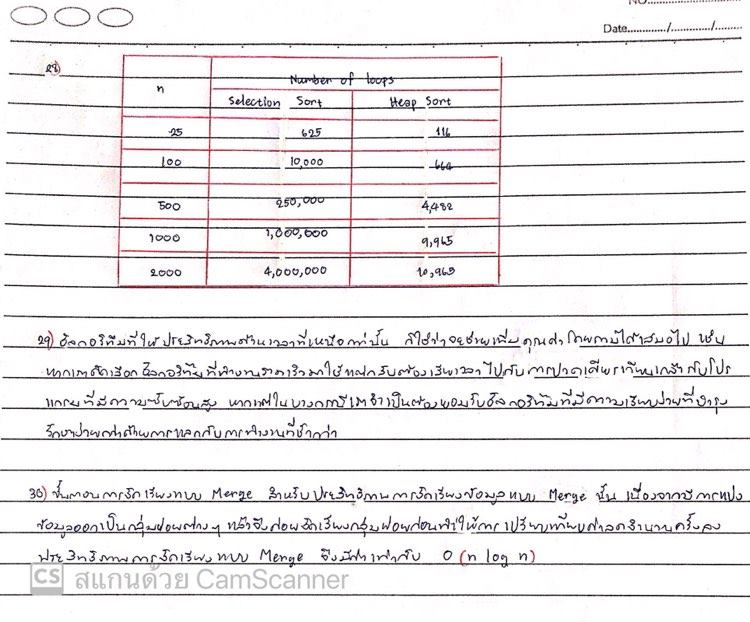 NO.
Date............/............/.........
28)
n Number of loops
Selection Sort Heap Sort
25 625 116
100 10,000 664
500 250,000 4,482
1000 1,000,000 9,965
2000 4,000,000 10,963
29) อัลกอริทึมที่ให้ประสิทธิภาพด้านเวลาที่เหนือกว่านั้น ก็ใช่ว่าจะช่วยเพิ่มคุณค่าโดยภาพได้เสมอไป เช่น
หากเราคัดเลือกอัลกอริทึมที่ทำงานรวดเร็วมาใช้ แต่กลับต้องเสียเวลาไปกับการปวดเศียรเวียนเกล้ากับโปร
แกรมที่มีความซับซ้อนสูง หากแต่ในบางกรณีเราจำเป็นต้องยอมรับอัลกอริทึมที่มีความเรียบง่ายที่บำรุง
รักษาง่ายกว่าด้วยการแลกกับการทำงานที่ช้ากว่า
30) ขั้นตอนการจัดเรียงแบบ Merge สำหรับประสิทธิภาพการจัดเรียงข้อมูลแบบ Merge นั้น เนื่องจากมีการแบ่ง
ข้อมูลออกเป็นกลุ่มย่อยต่างๆ แล้วจึงค่อยจัดเรียงกลุ่มย่อยก่อนทำให้การเปรียบเทียบค่าลดจำนวนครั้งลง
ประสิทธิภาพการจัดเรียงแบบ Merge จึงมีค่าเท่ากับ O (n log n)
CS สแกนด้วย CamScanner